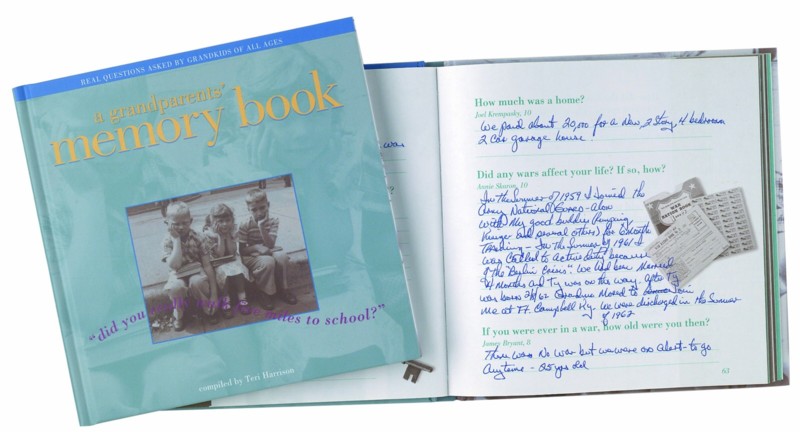 REAL QUESTIONS ASKED BY GRANDKIDS OF ALL AGES
a grandparents'
memory book
"did you really walk five miles to school?"
compiled by Teri Harrison
was
How much was a home?
Joel Krompasky, 10
We paid about 20,000 for a New, 2 Story, 4 bedroom
2 car garage house.
Did any wars affect your life? If so, how?
Annie Sharon, 10
In the Summer of 1959 I joined the
Army National Guard - along
with My good buddies
Kruger and several others) for 6 Month
Training - In the Summer of 1961 I
was Called to Active duty because
of the "Berlin Crisis". We had been Married
4 Months and Ty was on the way. After Ty
was born 2/4/62 Grandma Moved to Join
Me at Ft. Campbell Ky. We were discharged in the Summer
of 1962
WAR
RATION BOOK
If you were ever in a war, how old were you then?
James Bryant, 8
There was No war but we were on alert - to go
Anytime - 25 yrs old
61